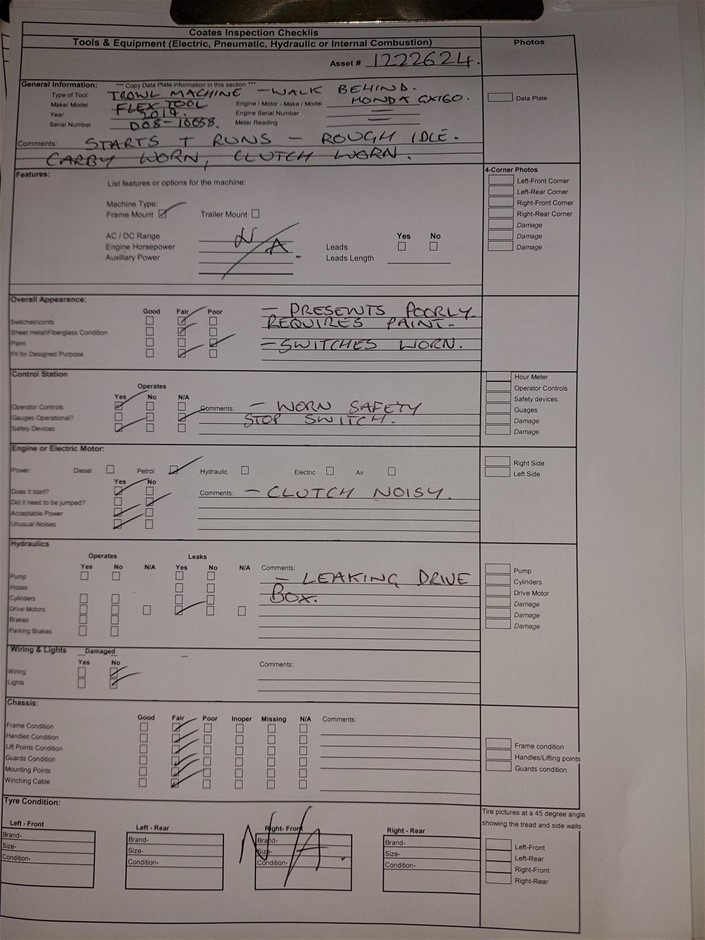 Coates Inspection Checklis
Tools & Equipment (Electric, Pneumatic, Hydraulic or Internal Combustion)
Photos
Asset # 1222624.
General Information: *** Copy Data Plate information in this section ***
Type of Tool TROWL MACHINE - WALK BEHIND.
Make/ Model FLEX TOOL Engine / Motor - Make / Model HONDA GX160.
Year 2014. Engine Serial Number
Serial Number DO8-10658. Meter Reading
Data Plate
Comments: STARTS + RUNS - ROUGH IDLE.
CARBY WORN, CLUTCH WORN.
Features:
List features or options for the machine:
Machine Type:
Frame Mount Trailer Mount
AC / DC Range N/A Yes No
Engine Horsepower Leads
Auxiliary Power Leads Length
4-Corner Photos
Left-Front Corner
Left-Rear Corner
Right-Front Corner
Right-Rear Corner
Damage
Damage
Damage
Overall Appearance:
Good Fair Poor
Switches/cords
Sheet metal/Fiberglass Condition
Paint
Fit for Designed Purpose
- PRESENTS POORLY
REQUIRES PAINT.
- SWITCHES WORN.
Control Station
Operates
Yes No N/A
Operator Controls
Gauges Operational?
Safety Devices
Comments: - WORN SAFETY
STOP SWITCH.
Hour Meter
Operator Controls
Safety devices
Guages
Damage
Damage
Engine or Electric Motor:
Power: Diesel Petrol Hydraulic Electric Air
Yes No
Does it start?
Did it need to be jumped?
Acceptable Power
Unusual Noises
Comments: - CLUTCH NOISY.
Right Side
Left Side
Hydraulics
Operates Leaks
Yes No N/A Yes No N/A
Pump
Hoses
Cylinders
Drive Motors
Brakes
Parking Brakes
Comments:
- LEAKING DRIVE
BOX.
Pump
Cylinders
Drive Motor
Damage
Damage
Damage
Wiring & Lights Damaged
Yes No
Wiring
Lights
Comments:
Chassis:
Good Fair Poor Inoper Missing N/A Comments:
Frame Condition
Handles Condition
Lift Points Condition
Guards Condition
Mounting Points
Winching Cable
Frame condition
Handles/Lifting points
Guards condition
Tyre Condition:
Left - Front
Brand-
Size-
Condition-
Left - Rear
Brand-
Size-
Condition-
Right- Front
Brand-
Size-
Condition-
N/A.
Right - Rear
Brand-
Size-
Condition-
Tire pictures at a 45 degree angle
showing the tread and side walls
Left-Front
Left-Rear
Right-Front
Right-Rear